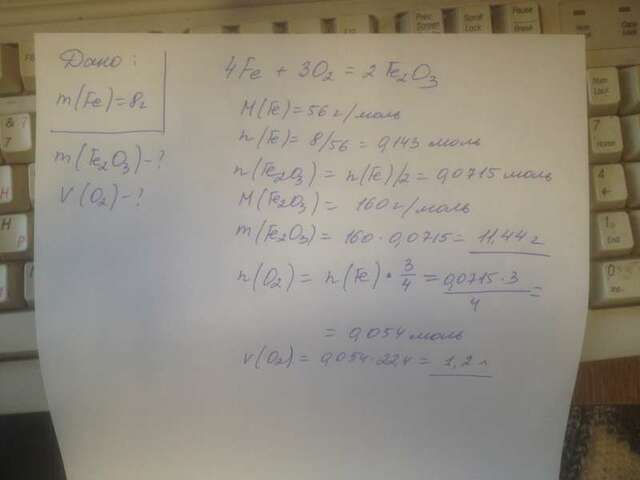 Дано:
m(Fe)=8г
m(Fe₂O₃)-?
V(O₂)-?
4Fe + 3O₂ = 2Fe₂O₃
M(Fe)=56г/моль
n(Fe)= 8/56 = 0,143 моль
n(Fe₂O₃) = n(Fe)/2 = 0,0715 моль
M(Fe₂O₃) = 160г/моль
m(Fe₂O₃) = 160·0,0715 = 11,44 г
n(O₂) = n(Fe)·3/4 = 0,0715·3/4 =
= 0,054 моль
V(O₂) = 0,054·22,4 = 1,2 л
Prnt Screen
Scroll Lock
Pause
Break
Num Lock
Caps Lock
& ?
7
7
Home
4
1
End
0
Ins
H
P